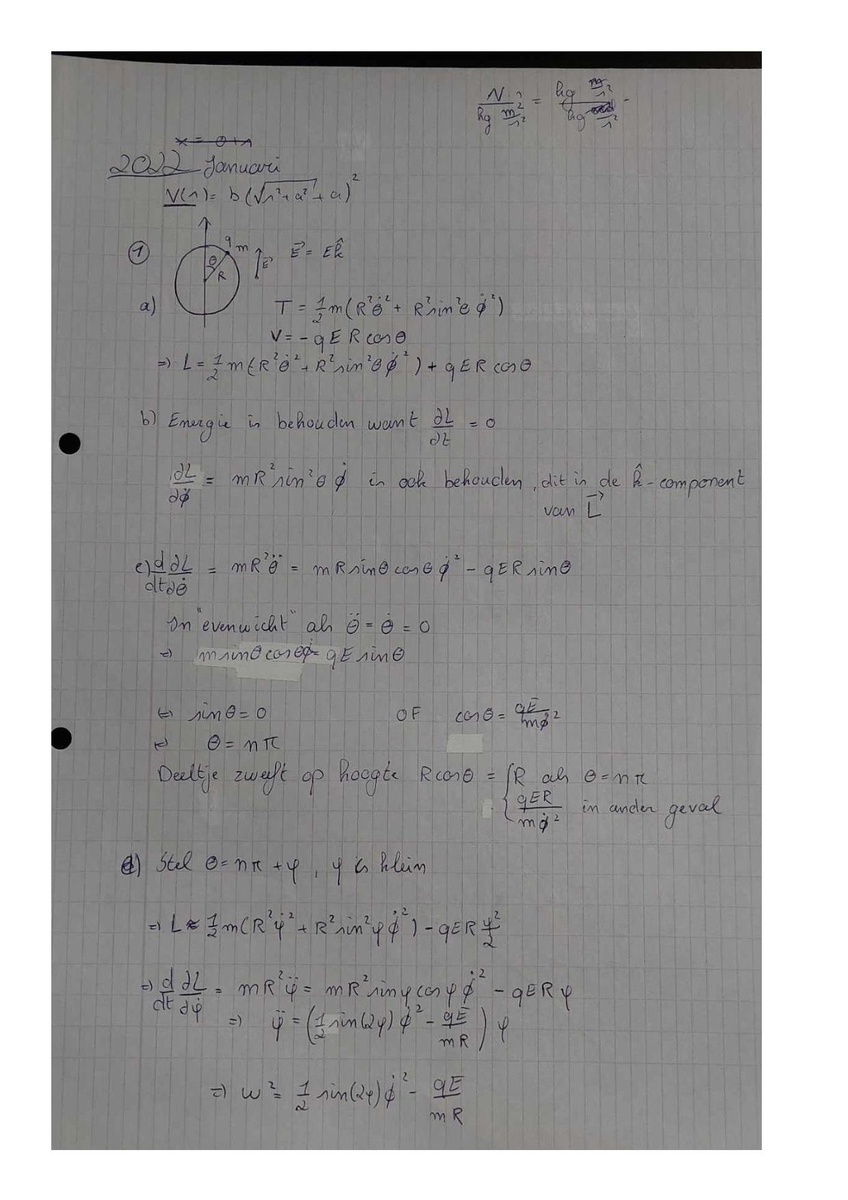 N/(kg m²/s²) = kg m/s² / kg m/s²
x = θ + π
2022 Januari
V(r) = b(√(r²+a²) + a)²
① q m θ R E⃗ E⃗ = E k̂
a) T = ½ m(R²θ̇² + R² sin²θ φ̇²)
V = - q E R cos θ
⇒ L = ½ m(R²θ̇² + R² sin²θ φ̇²) + qER cos θ
b) Energie is behouden want ∂L/∂t = 0
∂L/∂φ̇ = mR² sin²θ φ̇ is ook behouden, dit is de k̂-component
van L⃗
c) d/dt ∂L/∂θ̇ = mR²θ̈ = mR sinθ cosθ φ̇² - qER sinθ
In "evenwicht" als θ̈ = θ̇ = 0
⇒ m sinθ cosθ φ̇ = qE sinθ
⇔ sin θ = 0 OF cos θ = qE/mφ̇²
⇔ θ = nπ
Deeltje zweeft op hoogte R cos θ = { R als θ = nπ
qER/mφ̇² in ander geval
d) Stel θ = nπ + φ, φ is klein
⇒ L ≈ ½ m(R²φ̇² + R² sin²φ ϕ̇²) - qER φ²/2
⇒ d/dt ∂L/∂φ̇ = mR²φ̈ = mR² sinφ cosφ ϕ̇² - qER φ
⇒ φ̈ = (½ sin(2φ) ϕ̇² - qE/mR) φ
⇒ ω² = ½ sin(2φ) ϕ̇² - qE/mR